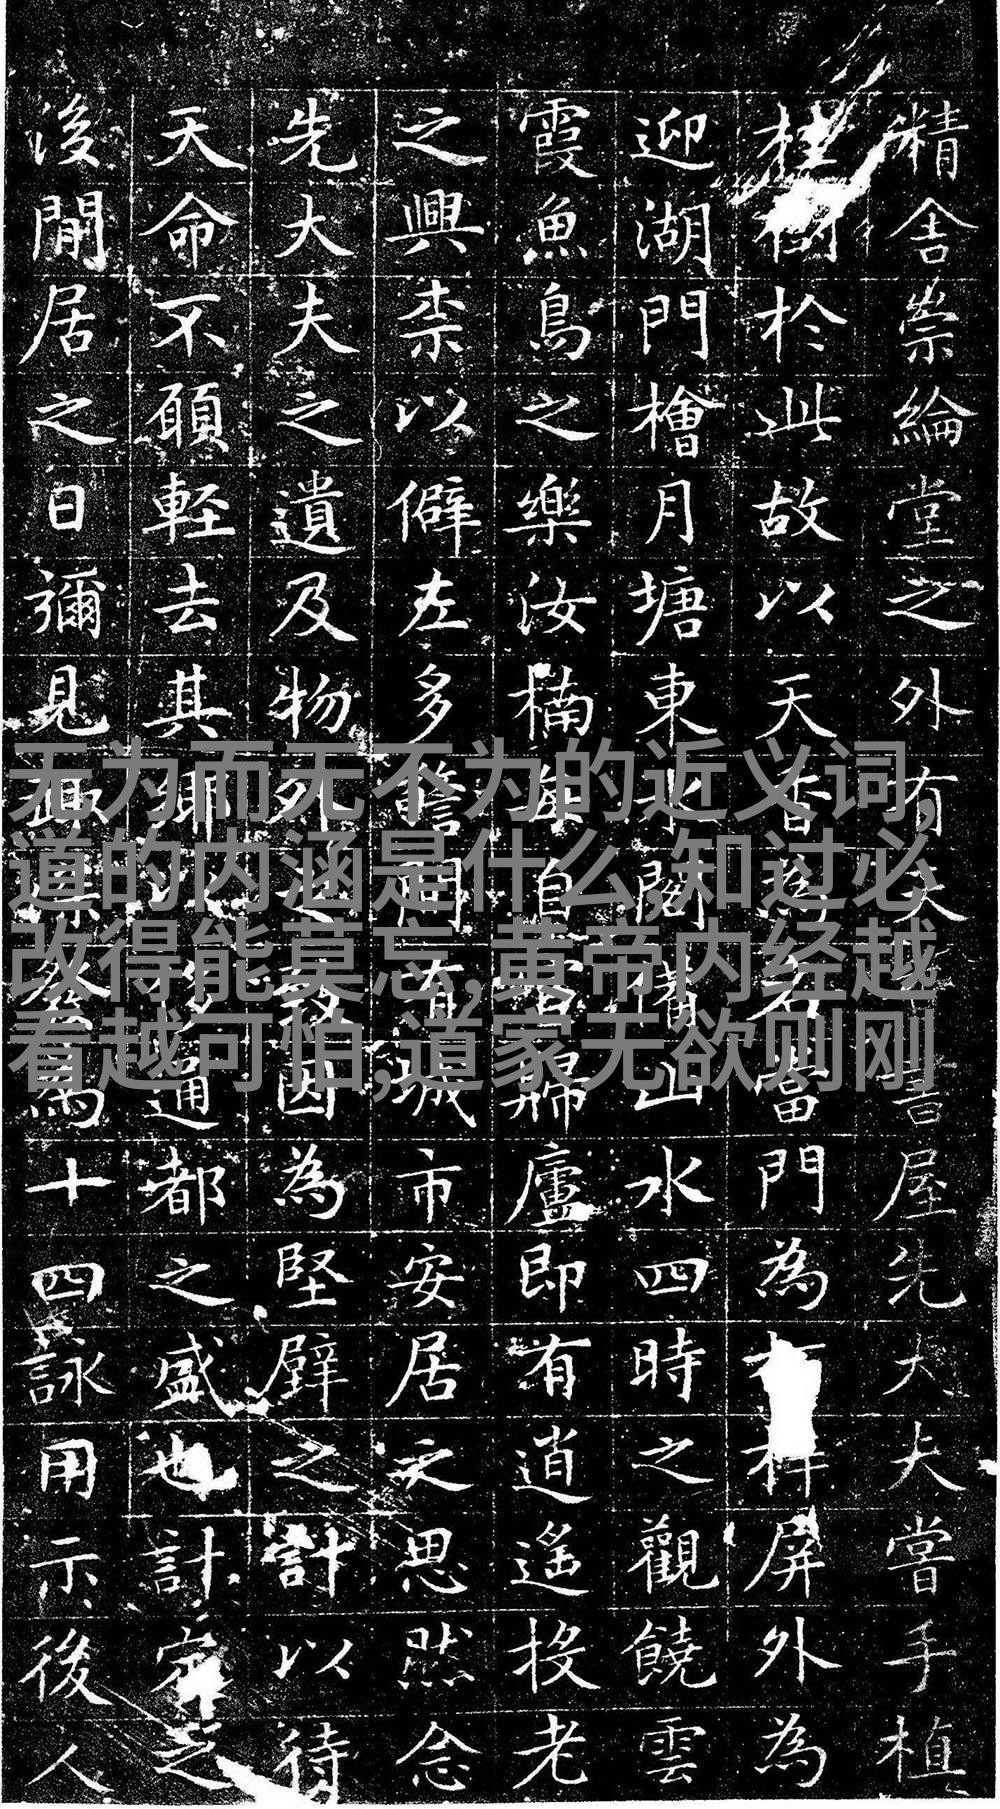 精舍崇綸堂之外有天書屋先大夫嘗手植
桂樹於此故以天香為名當門為屏外為
迎湖門檜月塘東北閣備山水四時之觀饒雲
霞魚鳥之樂汝楠每自官歸廬即有逍遙投老
之興柰以僻左多間有城市安居之思然念
先大夫之遺及物死之因為堅壁之計以待
天命不願輕去其鄉通都之盛也計定之
後閒居之日彌見為十四詠用示後人
无为而无不为的近义词,
道的内涵是什么,知过必
改得能莫忘,黄帝内经越
看越可怕,道家无欲则刚